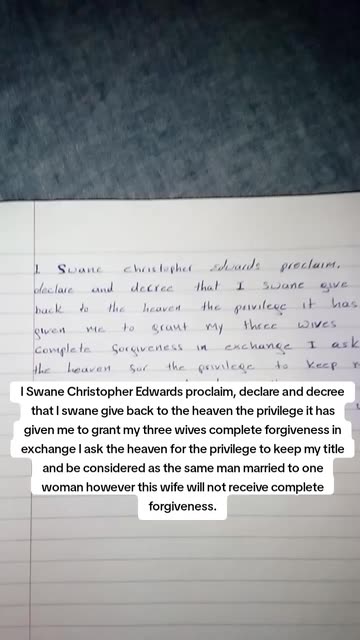 I Swane christopher edwards proclaim,
declare and decree that I swane give
back to the heaven the privilege it has
given me to grant my three wives
complete forgiveness in exchange I ask
the heaven for the privilege to keep
I Swane Christopher Edwards proclaim, declare and decree
that I swane give back to the heaven the privilege it has
given me to grant my three wives complete forgiveness in
exchange I ask the heaven for the privilege to keep my title
and be considered as the same man married to one
woman however this wife will not receive complete
forgiveness.